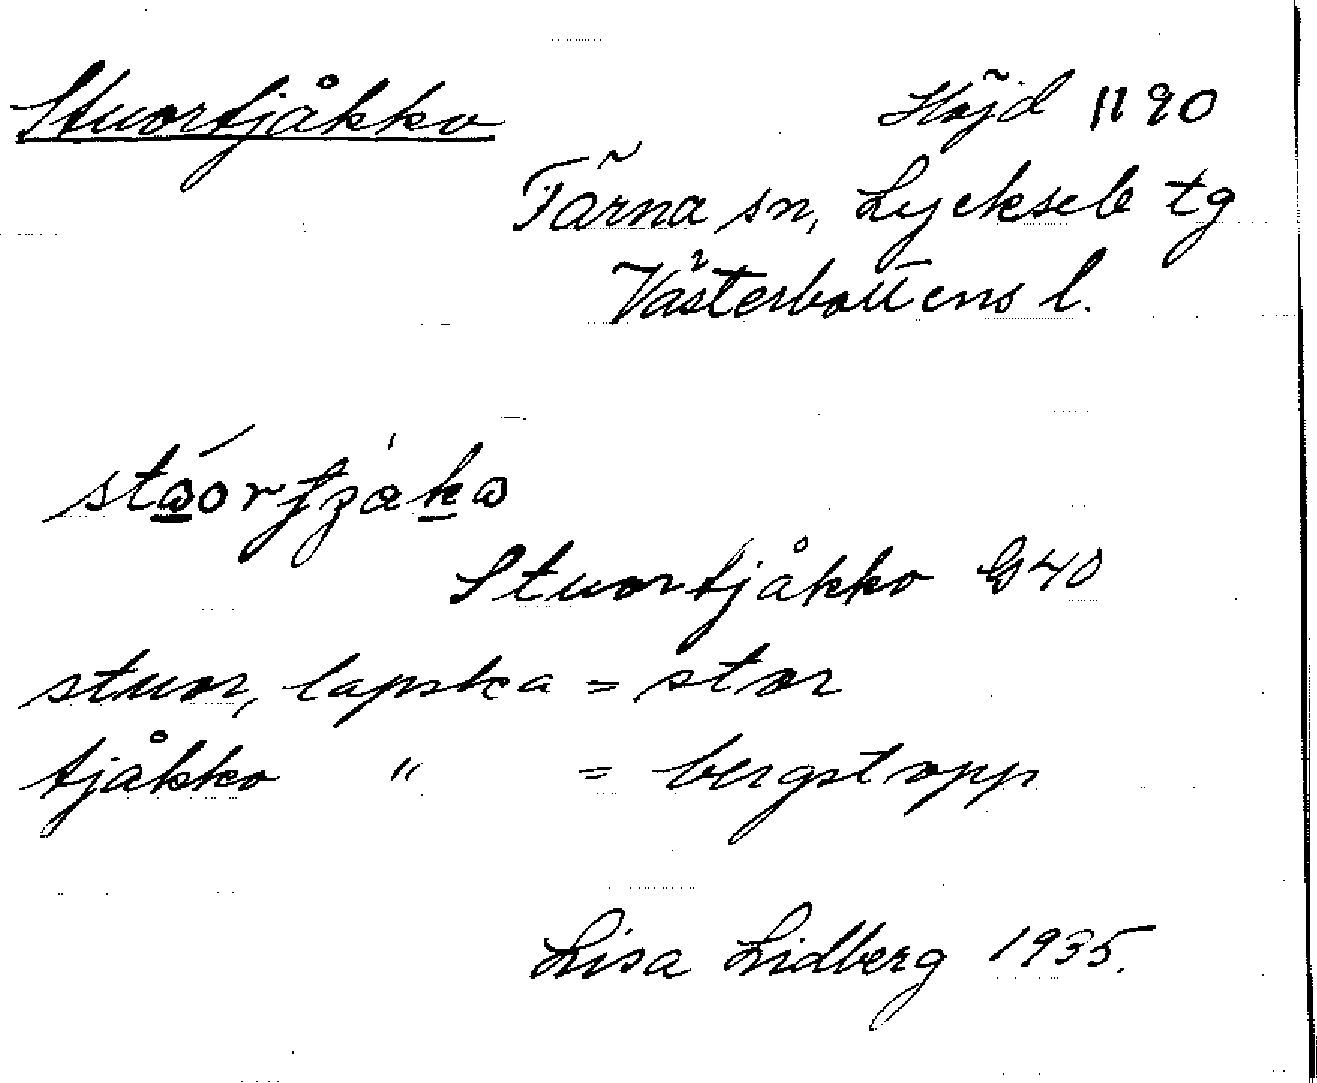 Stuortjåkko Höjd 1190
Tärna sn, Lycksele tg
Västerbottens l.
Stuortjåkko G40
stuor, lapska = stor
tjåkko " = bergstopp
Lisa Lidberg 1935.